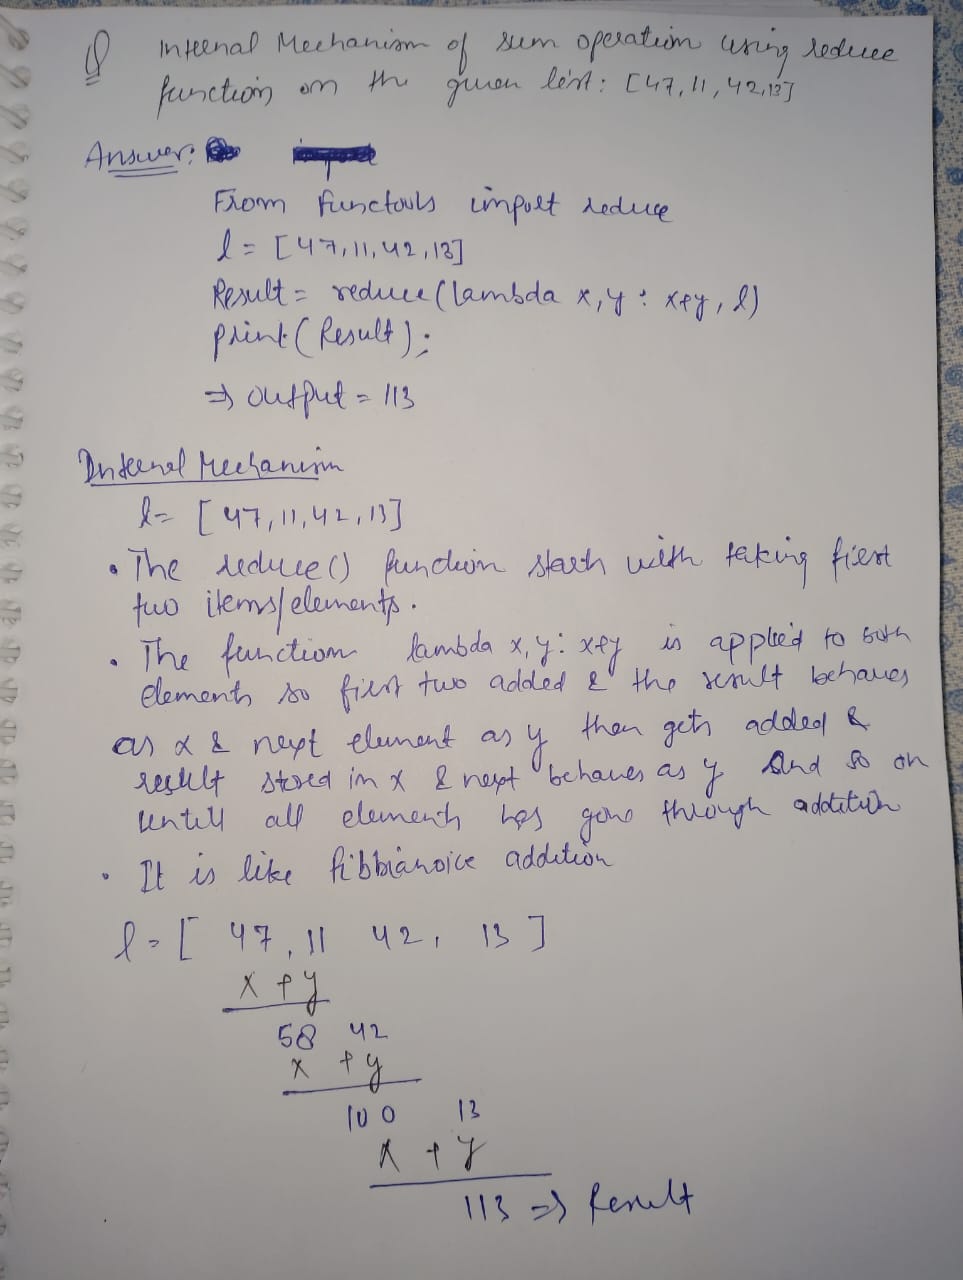 Q Internal Mechanism of sum operation using reduce
function on the given list: [47,11,42,13]
Answer:
From functools import reduce
l = [47,11,42,13]
Result = reduce(lambda x,y : x+y, l)
print(Result);
⇒ output = 113
Internal Mechanism
l = [47,11,42,13]
• The reduce() function starts with taking first
two items/elements.
• The function lambda x,y: x+y is applied to both
elements so first two added & the result behaves
as x & next element as y then gets added &
result stored in x & next behaves as y And so on
untill all elements has gone through addition
• It is like fibbianoice addition
l = [ 47, 11 42, 13 ]
x + y
58 42
x + y
100 13
x + y
113 ⇒ Result